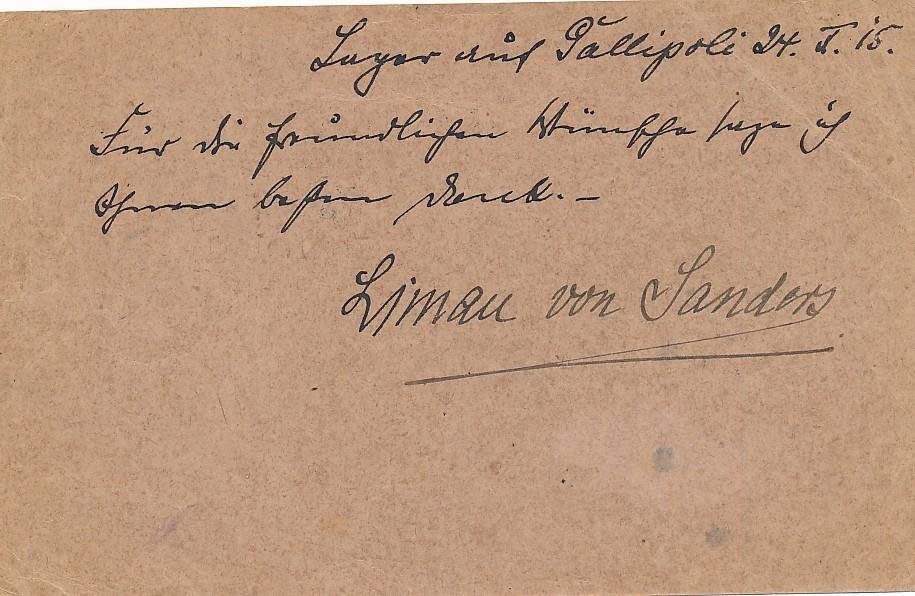 Lager auf Gallipoli 24. X. 15.
Für die freundlichen Wünsche sage ich
Ihnen besten Dank. –
Liman von Sanders